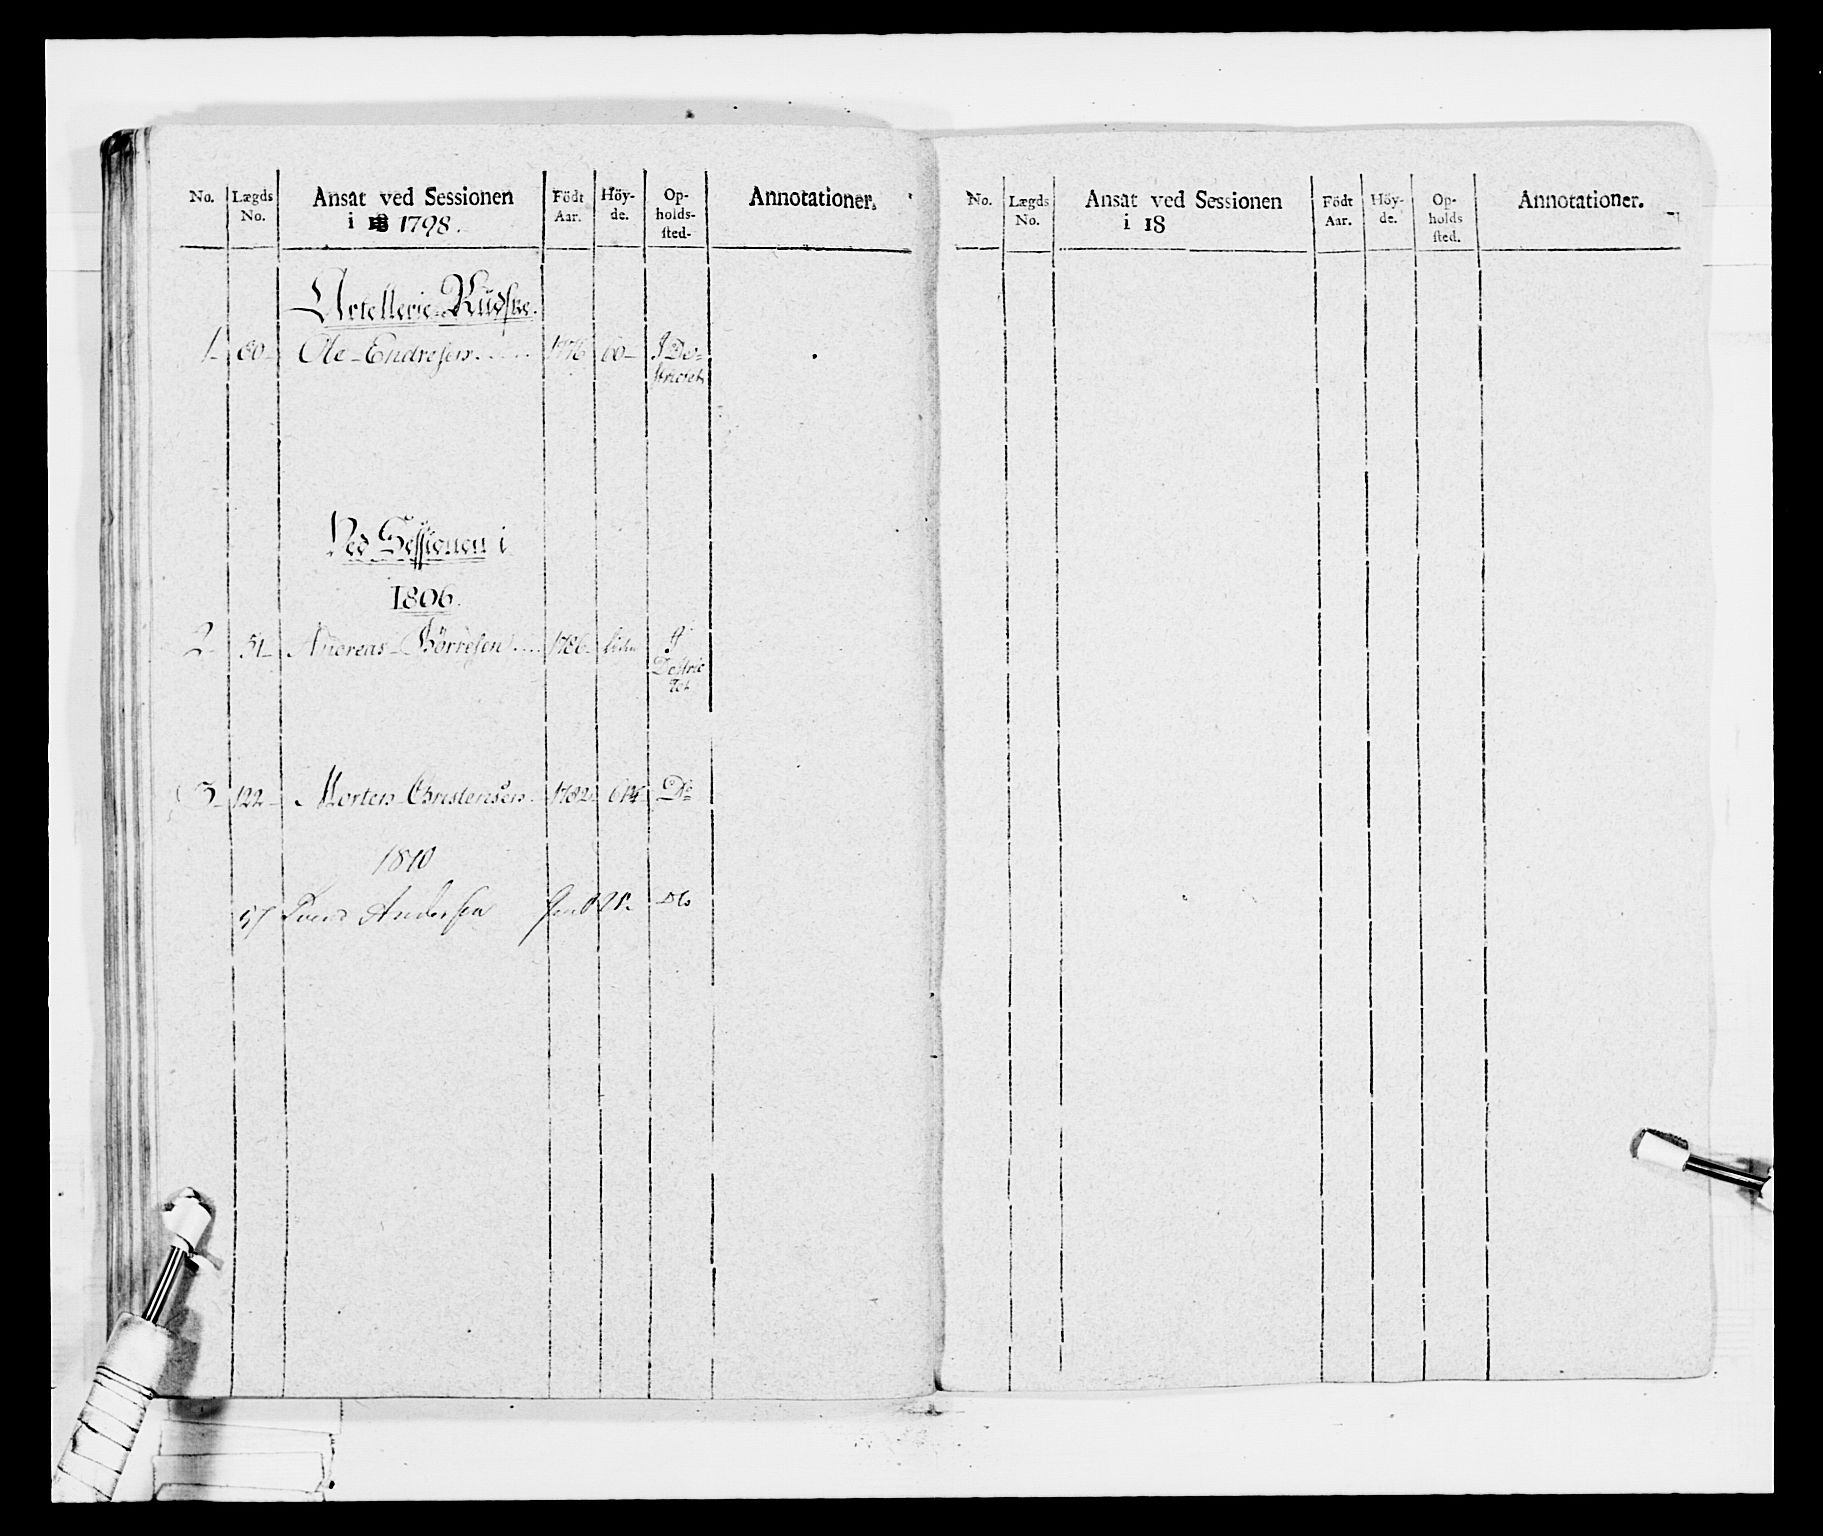 No. Lægds No. Ansat ved Sessionen i 18 1798. Födt Aar. Höy-de. Op-holds-sted. Annotationer.
Artellerie-Kudske.
1 60 Ole Endresen 1776 60 I De=
strictet
Ved Sessionen i
1806.
2 51 Andreas Börresen 1786 I
Destric
tet
3 122 Morten Christensen 1782 Do
1810
57 Svend Andersen Do
No. Lægds No. Ansat ved Sessionen i 18 Födt Aar. Höy-de. Op-holds sted. Annotationer.